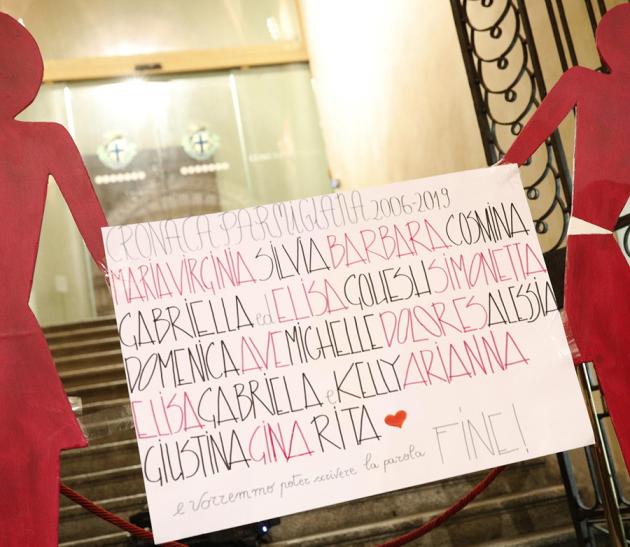 CRONACA PARMIGIANA 2006-2019
MARIAVIRGINIA SILVIA BARBARA COSMINA
GABRIELLA ed ELISA GOUESLI SIMONETTA
DOMENICA AVE MICHELLE DOLORES ALESSIA
ELISA GABRIELA e KELLY ARIANNA
GIUSTINA GINA RITA
e vorremmo poter scrivere la parola FINE!